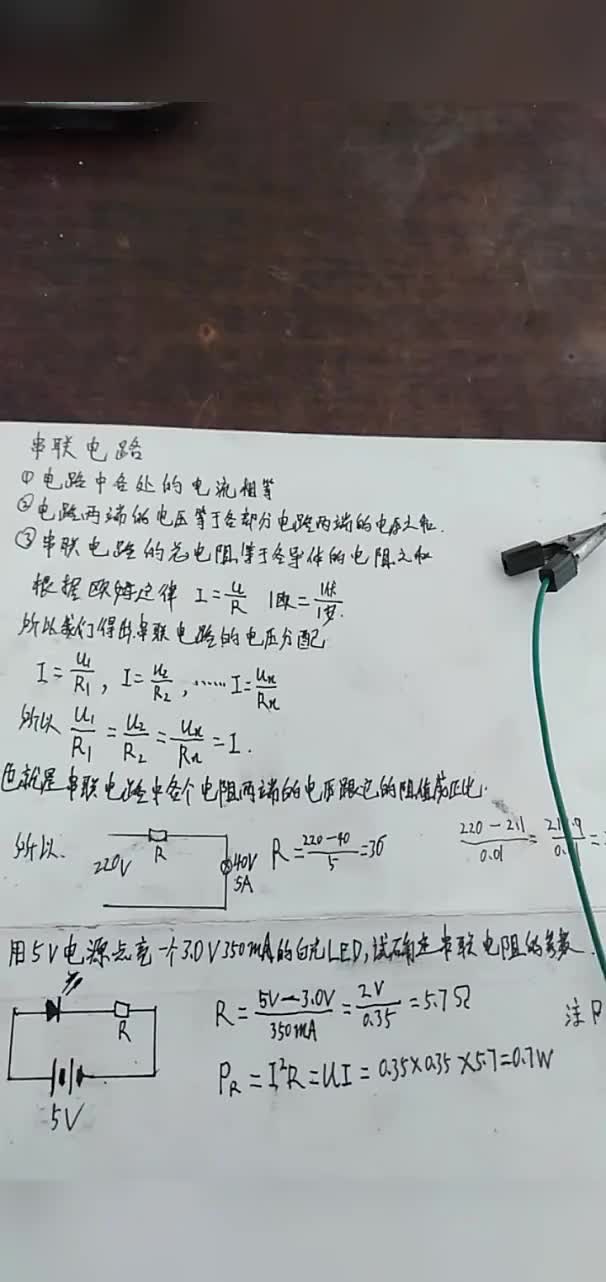 串联电路
①电路中各处的电流相等
②电路两端的电压等于各部分电路两端的电压之和.
③串联电路的总电阻等于各导体的电阻之和
根据欧姆定律 I=U/R 1欧=1伏/1安.
所以我们得出串联电路的电压分配
I=U1/R1, I=U2/R2, ……I=Un/Rn
所以 U1/R1=U2/R2=Un/Rn=I.
也就是串联电路中各个电阻两端的电压跟它的阻值成正比.
所以. 220V R 40V 5A R=(220-40)/5=36
(220-2.1)/0.01=
用5V电源点亮一个3.0V350mA的白光LED,试确定串联电阻的参数.
R
5V
R=(5V-3.0V)/350mA=2V/0.35=5.7Ω
注P
PR=I²R=UI=0.35×0.35×5.7=0.7W